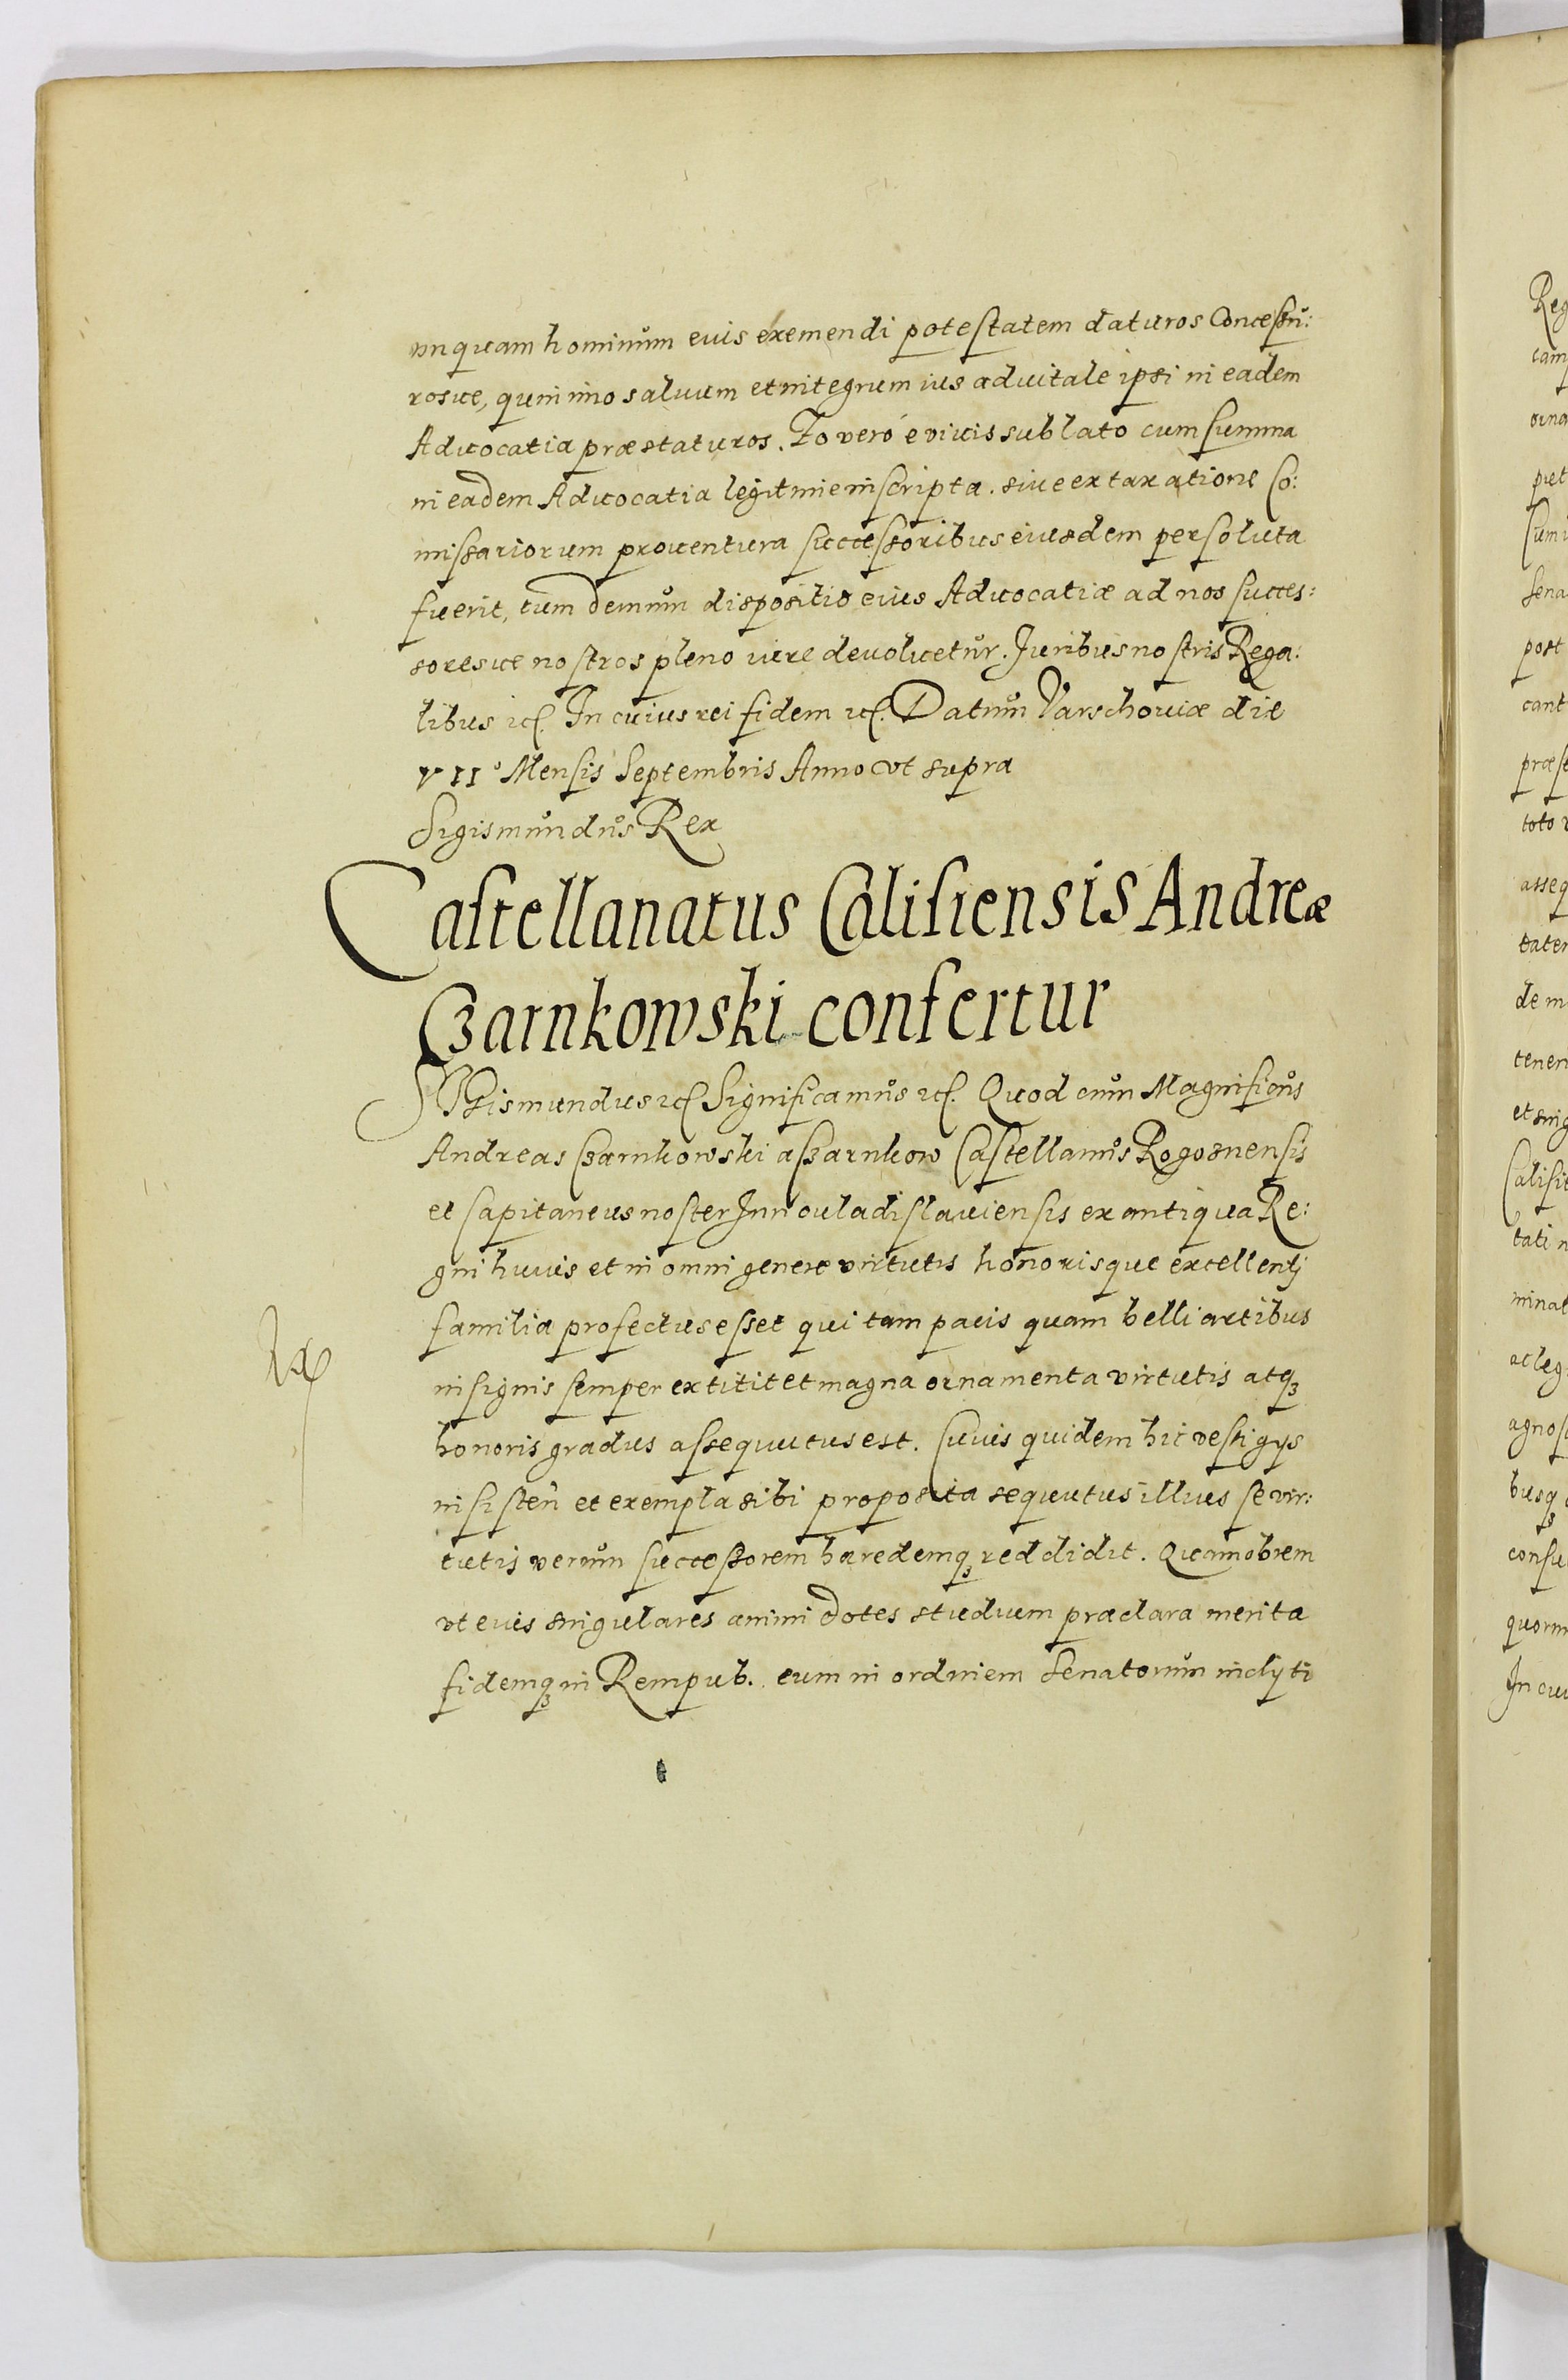 vnquam hominum eius exemendi potestatem daturos Concessu:
rosue, quin imo saluum et integrum ius aduitale ipsi in eadem
Aduocatia præstaturos. Eo veró é viuis sublato cum summa
in eadem Aduocatia legitime inscripta. siue ex taxatione Co:
missariorum prouentura successoribus eiusdem persoluta
fuerit, tum demum dispositio eius Aduocatiæ ad nos succes:
soresue nostros pleno iure deuoluetur. Juribus nostris Rega:
libus etc. In cuius rei fidem etc. Datum Varschouiæ die
VII° Mensis Septembris Anno vt supra
Sigismundus Rex
Castellanatus Calisiensis Andreæ
Czarnkowski confertur
Sigismundus etc Significamus etc. Quod cum Magnificus
Andreas Czarnkowski a Czarnkow Castellanus Rogosnensis
et Capitaneus noster Innouladislauiensis ex antiqua Re:
gni huius et in omni genere virtutis honorisque excellentj
familia profectus esset qui tam pacis quam belli artibus
insignis semper extitit et magna ornamenta virtutis atq3
honoris gradus assequutus est. Cuius quidem hic vestigys
insisten et exempla sibi proposita sequutus illius se vir:
tutis verum successorem hæredemq3 reddidit. Quamobrem
vt eius singulares animi dotes studium præclara merita
fidemq3 in Rempub. eum in ordinem Senatorum inclyti
Reg
cam
orna
piet
Sena
post
cant
præst
toto
asseq
tatem
de m
tenen
et sing
Calisie
tati
minat
ac leg
agnos
busq3
consu
quorum
In cui